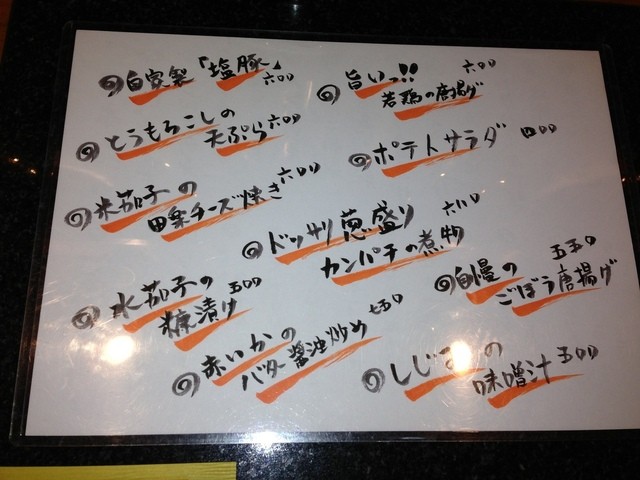 自家製「塩豚」 六〇〇
とうもろこしの
天ぷら 六〇〇
水茄子の
田楽チーズ焼き 六〇〇
水茄子の
糠漬け 五〇〇
赤いかの
バター醤油炒め 七五〇
旨いっ!! 六〇〇
若鶏の唐揚げ
ポテトサラダ 四〇〇
ドッサリ葱盛り
カンパチの煮物
自慢の 五五〇
ごぼう唐揚げ
しじみの
味噌汁 五〇〇